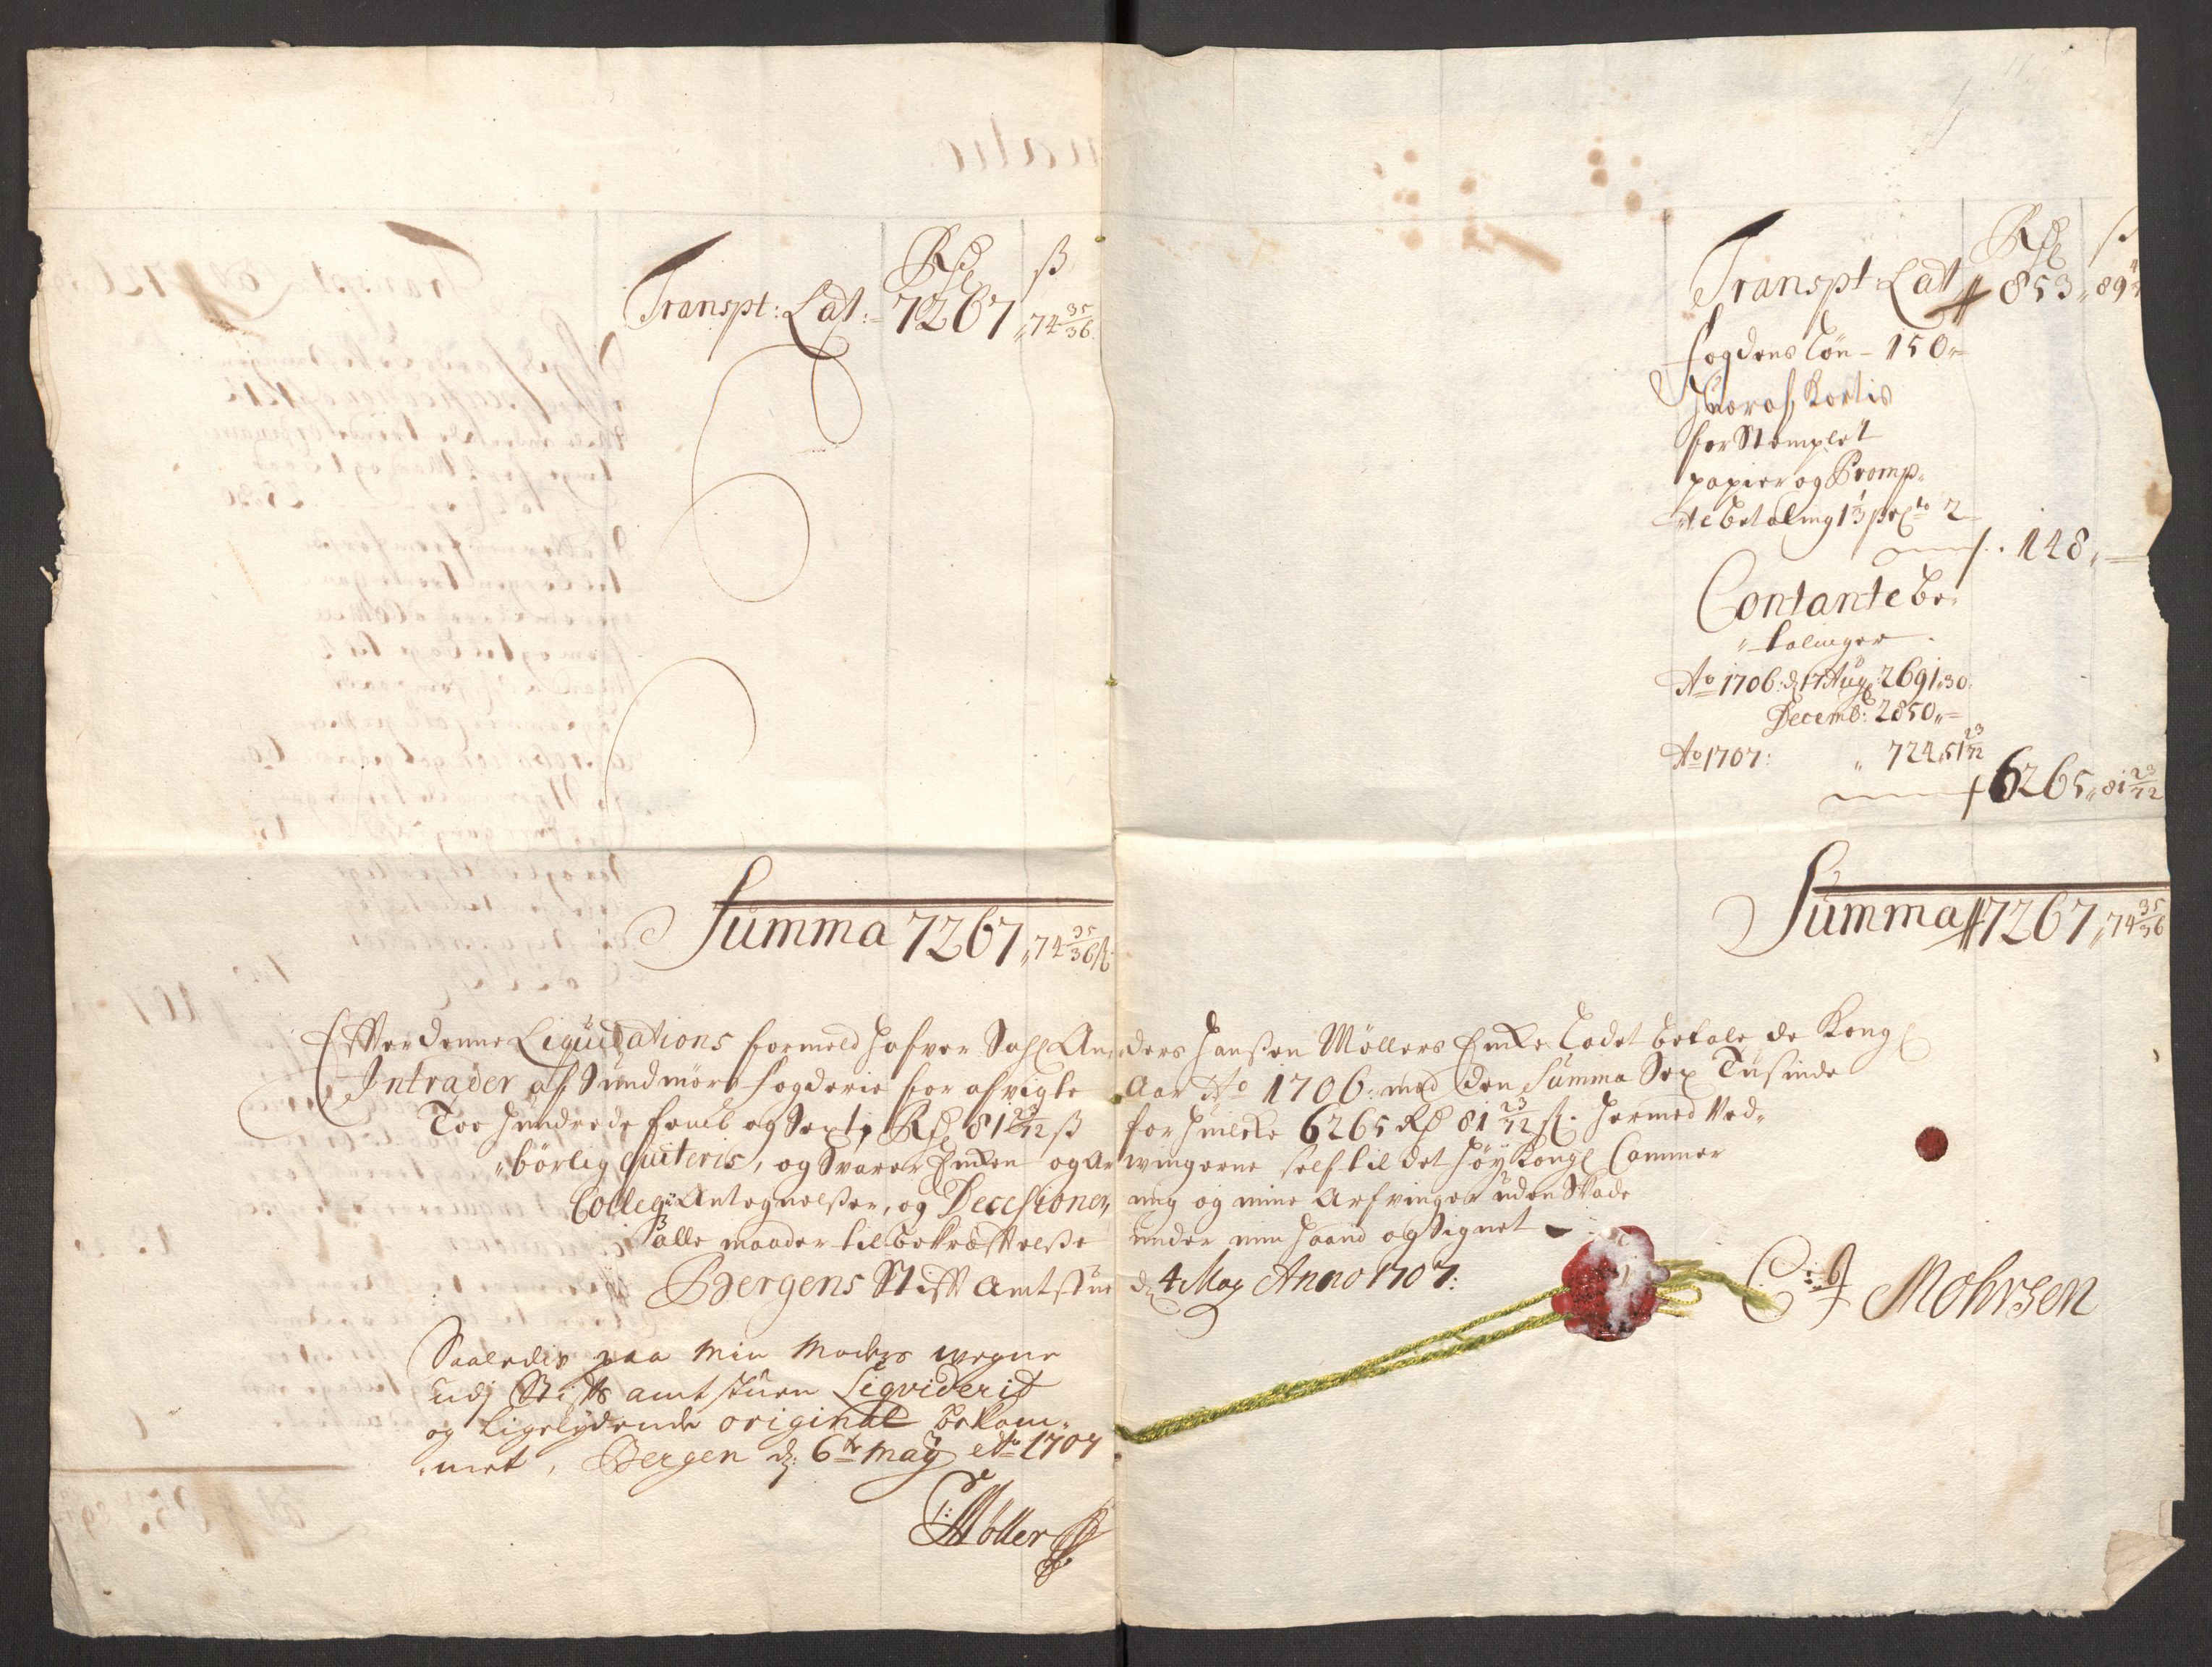 Rdl ß
Transpt: Lat: 7267„ 74 35/36
Summa 7267„ 74 35/36 ß
Rdl ß
Transpt Lat 853„ 89
fogdens Løn - 150„
hvoraf Kortis
for Stemplet
papier og Promp„
„te betaling 1⅓ prcto 2
148„
Contante be„
„talinger
Ao 1706: d 17 Aug: 2691„30
Decemb: 2850„
Ao 1707: „ 724„51 23/72
6265„ 81 23/72
Summa 7267„ 74 35/36
Efter denne Liqvidations formeld hafver Sahl Anders Hanßen Møllers Encke Ladet betale de Kongl
Intrader af Sundmørs fogderie for afvigte Aar Ao 1706: med den Summa Sex Tusinde
Toe hundrede femb og Sexti Rdl 81 23/72 ß for hvilcke 6265 Rd 81 23/72 ß: hermed Ved„
„børlig quiteris, og Svarer Encken og Arvingerne self til det høy Kongl Cammer
Collegij Antegnelßer, og Decisioner, mig og mine Arfvinger uden Skade
J alle maader til bekræftelße under min haand og Signet
Bergens Stift Amtstue d 4 May Anno 1707:
C J Mohrsen
Saaledis paa Min Moders wegne
udj Stifts amtstuen Liqviderit
og ligelydende original bekom„
„met, Bergen d: 6te may Ao 1707
Møller